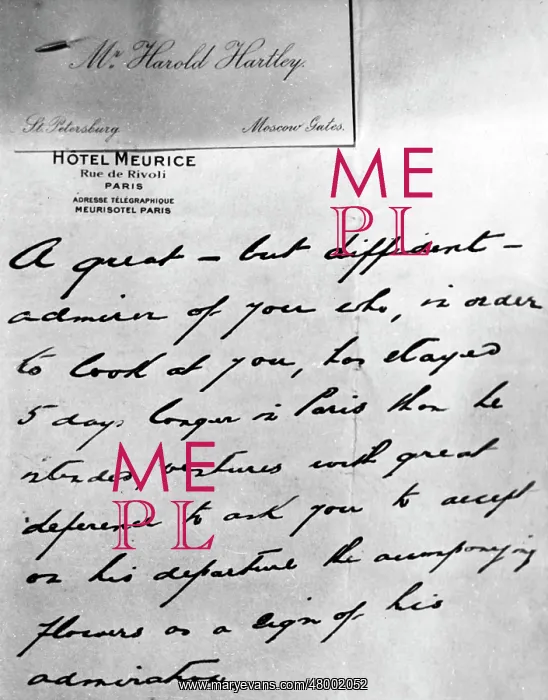 Mr Harold Hartley.
St. Petersburg.
Moscow Gates.
HÔTEL MEURICE
Rue de Rivoli
PARIS
ADRESSE TÉLÉGRAPHIQUE
MEURISOTEL PARIS
ME
PL
A great - but diffident -
admirer of you who, in order
to look at you, has stayed
5 days longer in Paris than he
intended ventures with great
deference to ask you to accept
on his departure the accompanying
flowers as a sign of his
admiration
ME
PL
www.maryevans.com/48002052